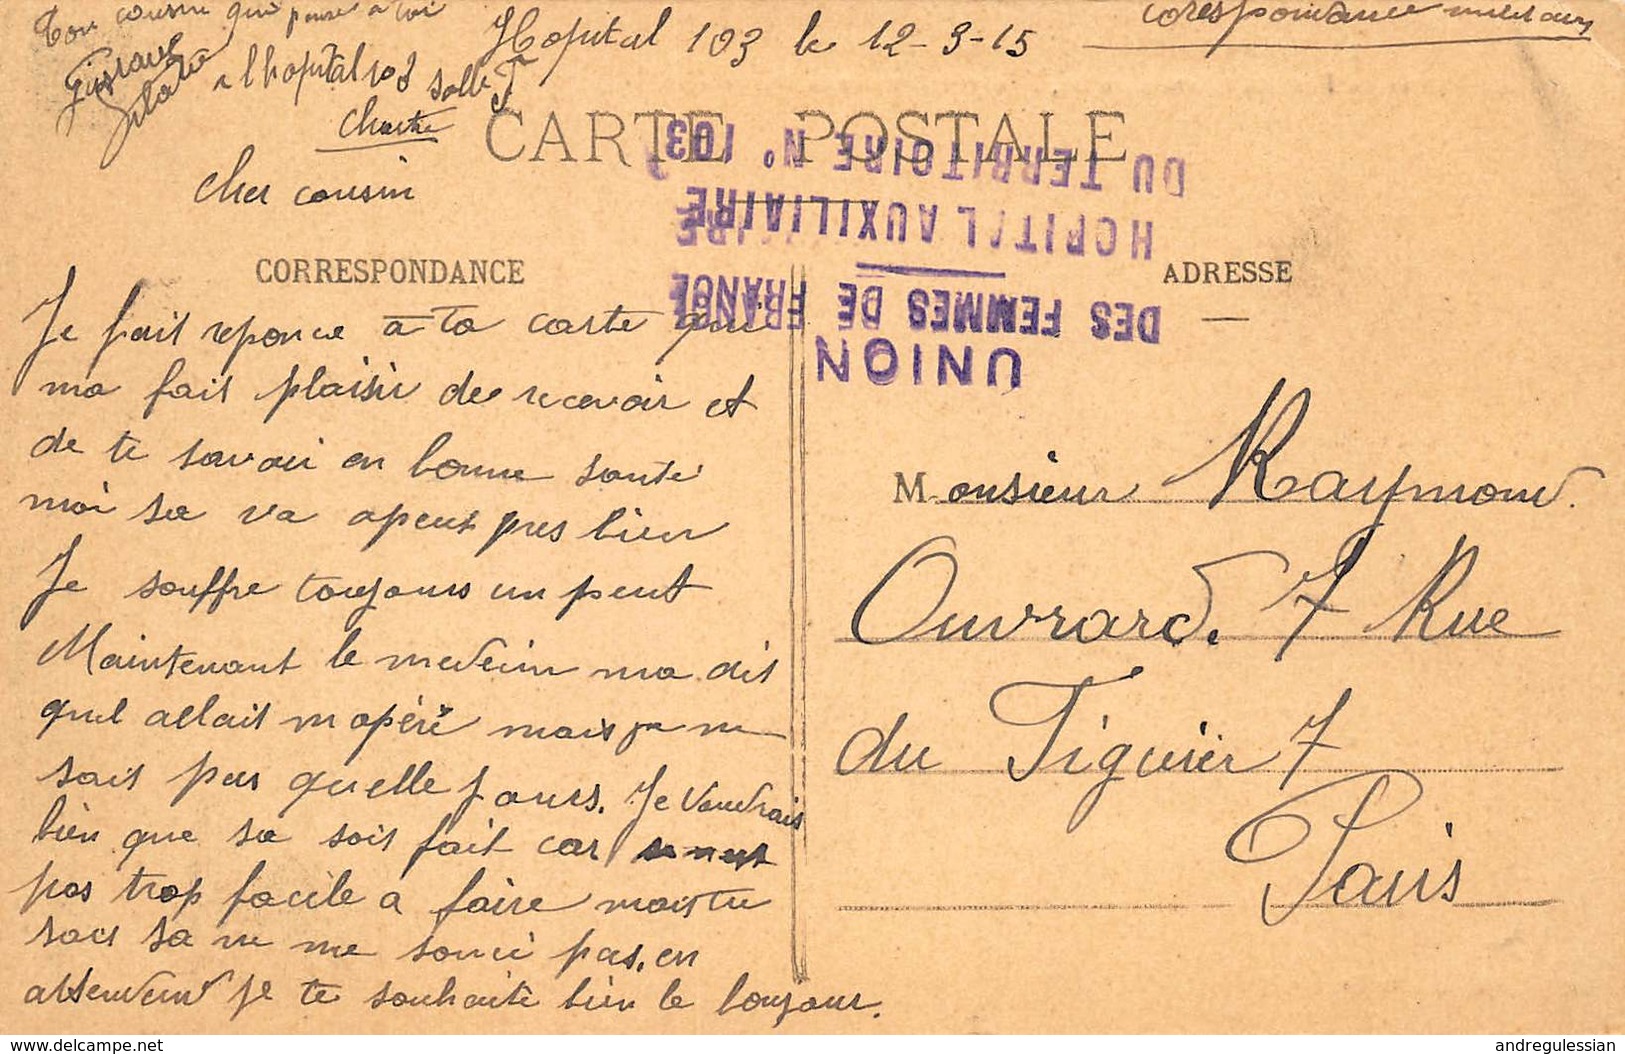 Ton cousin qui pense a toi
Gustave
a l hopital 103 salle F
Chartre
Hopital 103 le 12-3-15
corespondance militaire
CARTE POSTALE
cher cousin
UNION
DES FEMMES DE FRANCE
HOPITAL AUXILIAIRE
DU TERRITOIRE N° 103
CORRESPONDANCE
ADRESSE
Je fait reponce a ta carte qui
ma fait plaisir de recevoir et
de te savoir en bonne santé
moi sa va apeut pres bien
Je souffre toujours un peut
Maintenant le medecin ma dit
quil allait m opéré mais je ne
sait pas quelle jours. Je voudrais
bien que sa soit fait car
pas trop facile a faire mais tu
sais sa ne me souci pas. en
attendend je te souhaite bien le bonjour.
Monsieur Raymond.
Ouvrard. 7 Rue
du Figuier 7
Paris
delcampe.net
andregulessian